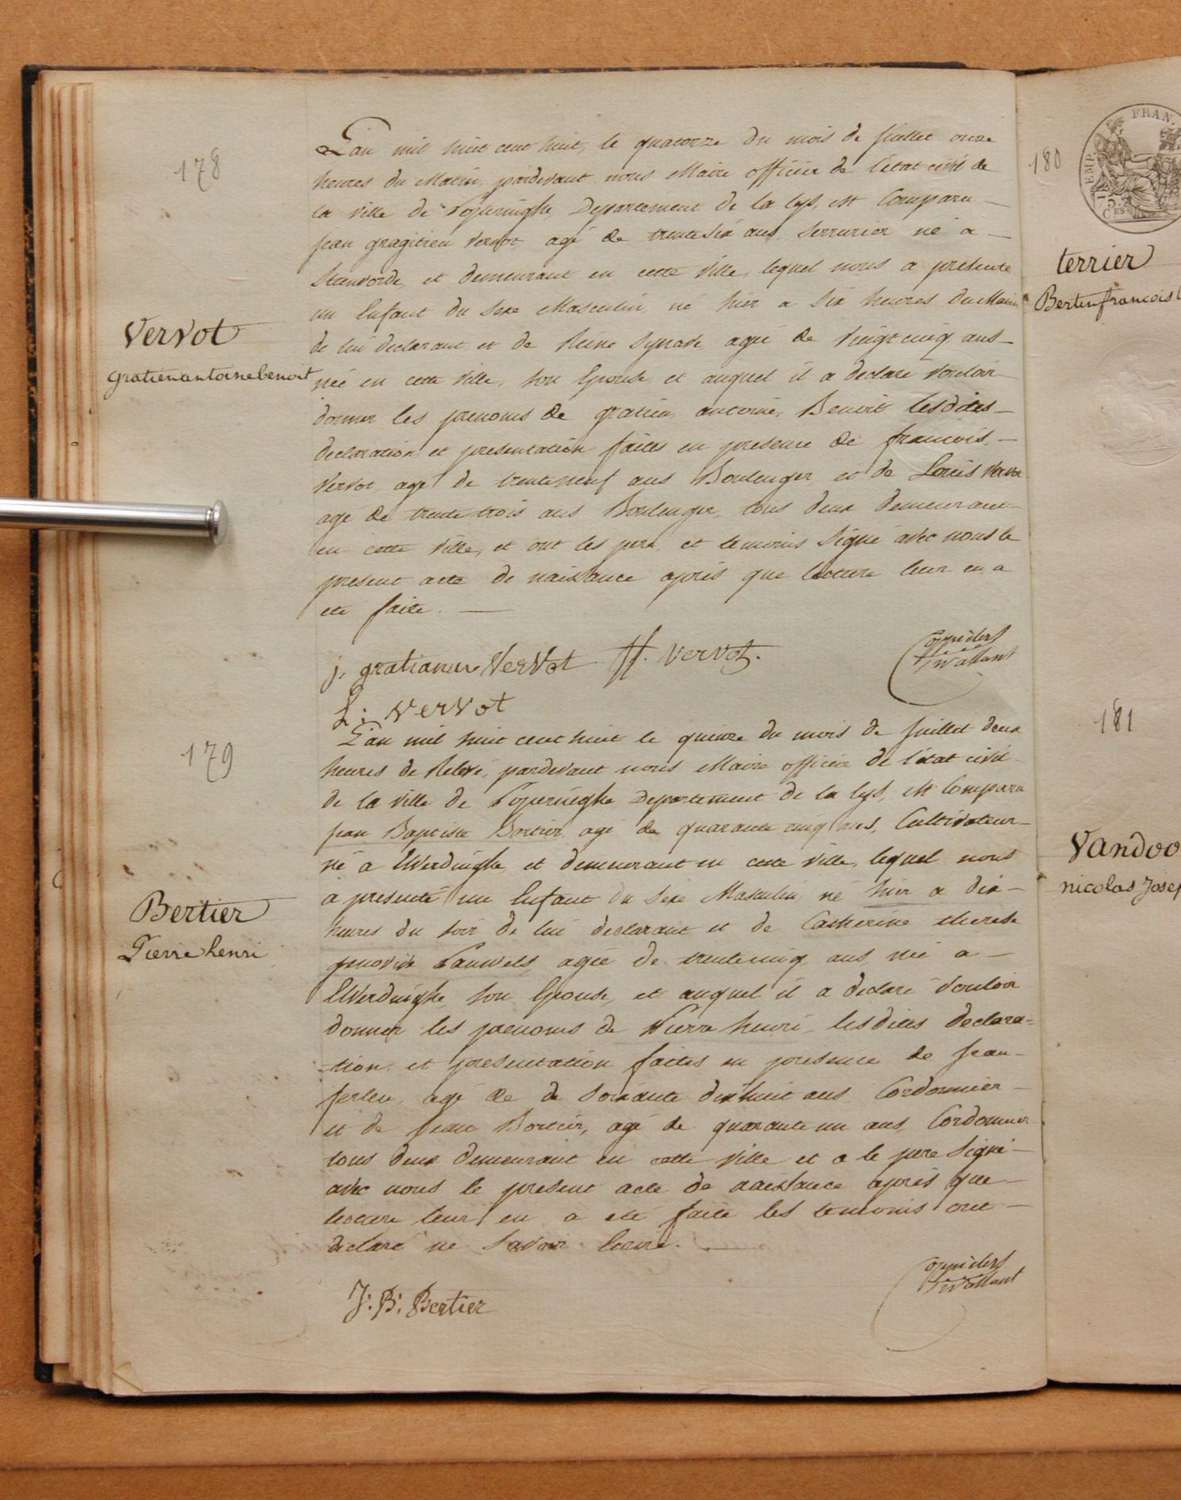 178
Vervot
gratien antoine benoit
L'an mil huit cent huit, le quatorze du mois de Juillet onze
heures du Matin, pardevant nous Maire officier de l'état civil de
la ville de Poperinghe Departement de la Lys, est Comparu
jean gragitien Vervot agé de trente six ans Serrurier né a
Steenvorde, et demeurant en cette Ville, lequel nous a presenté
un Enfant du Sexe Masculin né hier a Six heures du Matin
de lui declarant et de Reine agée de Vingt cinq ans
née en cette Ville, Son Epouse, et auquel il a declaré Vouloir
donner les prenoms de gratien antoine Benoit lesdites
declaration et presentation faites en presence de francois
Vervot agé de trente neuf ans Boulenger et de Louis Vervot
agé de trente trois ans Boulenger, tous deux demeurant
en cette Ville, et ont les pere et temoins Signé avec nous le
present acte de naissance après que lecture leur en a
eté faite.
j. gratianus Vervot ff. Vervot.
L: Vervot
179
Bertier
Pierre henri
L'an mil huit cent huit le quinze du mois de Juillet deux
heures de Relevé, pardevant nous Maire officier de l'état civil
de la Ville de Poperinghe Departement de la Lys, est Comparu
jean Baptiste Bertier agé de quarante cinq ans, Cultivateur
né a Elverdinghe et demeurant en cette Ville, lequel nous
a presenté un Enfant du Sexe Masculin né hier a dix
heures du Soir de lui declarant et de Catherine therese
Pauwels agée de trente cinq ans née a
Elverdinghe Son Epouse, et auquel il a declaré Vouloir
donner les prenoms de Pierre henri lesdites declara=
tion et presentation faites en presence de jean
agé de de Soixante dixhuit ans Cordonnier
et de jean Bertier, agé de quarante un ans, Cordonnier
tous deux demeurant en cette Ville et a le pere Signé
avec nous le present acte de naissance après que
lecture leur en a eté faite les temoins ont
declaré ne Savoir Ecrire.
J: B: Bertier
180
EMP. FRAN.
terrier
Bertin francois
181
Vandoo
nicolas Josep